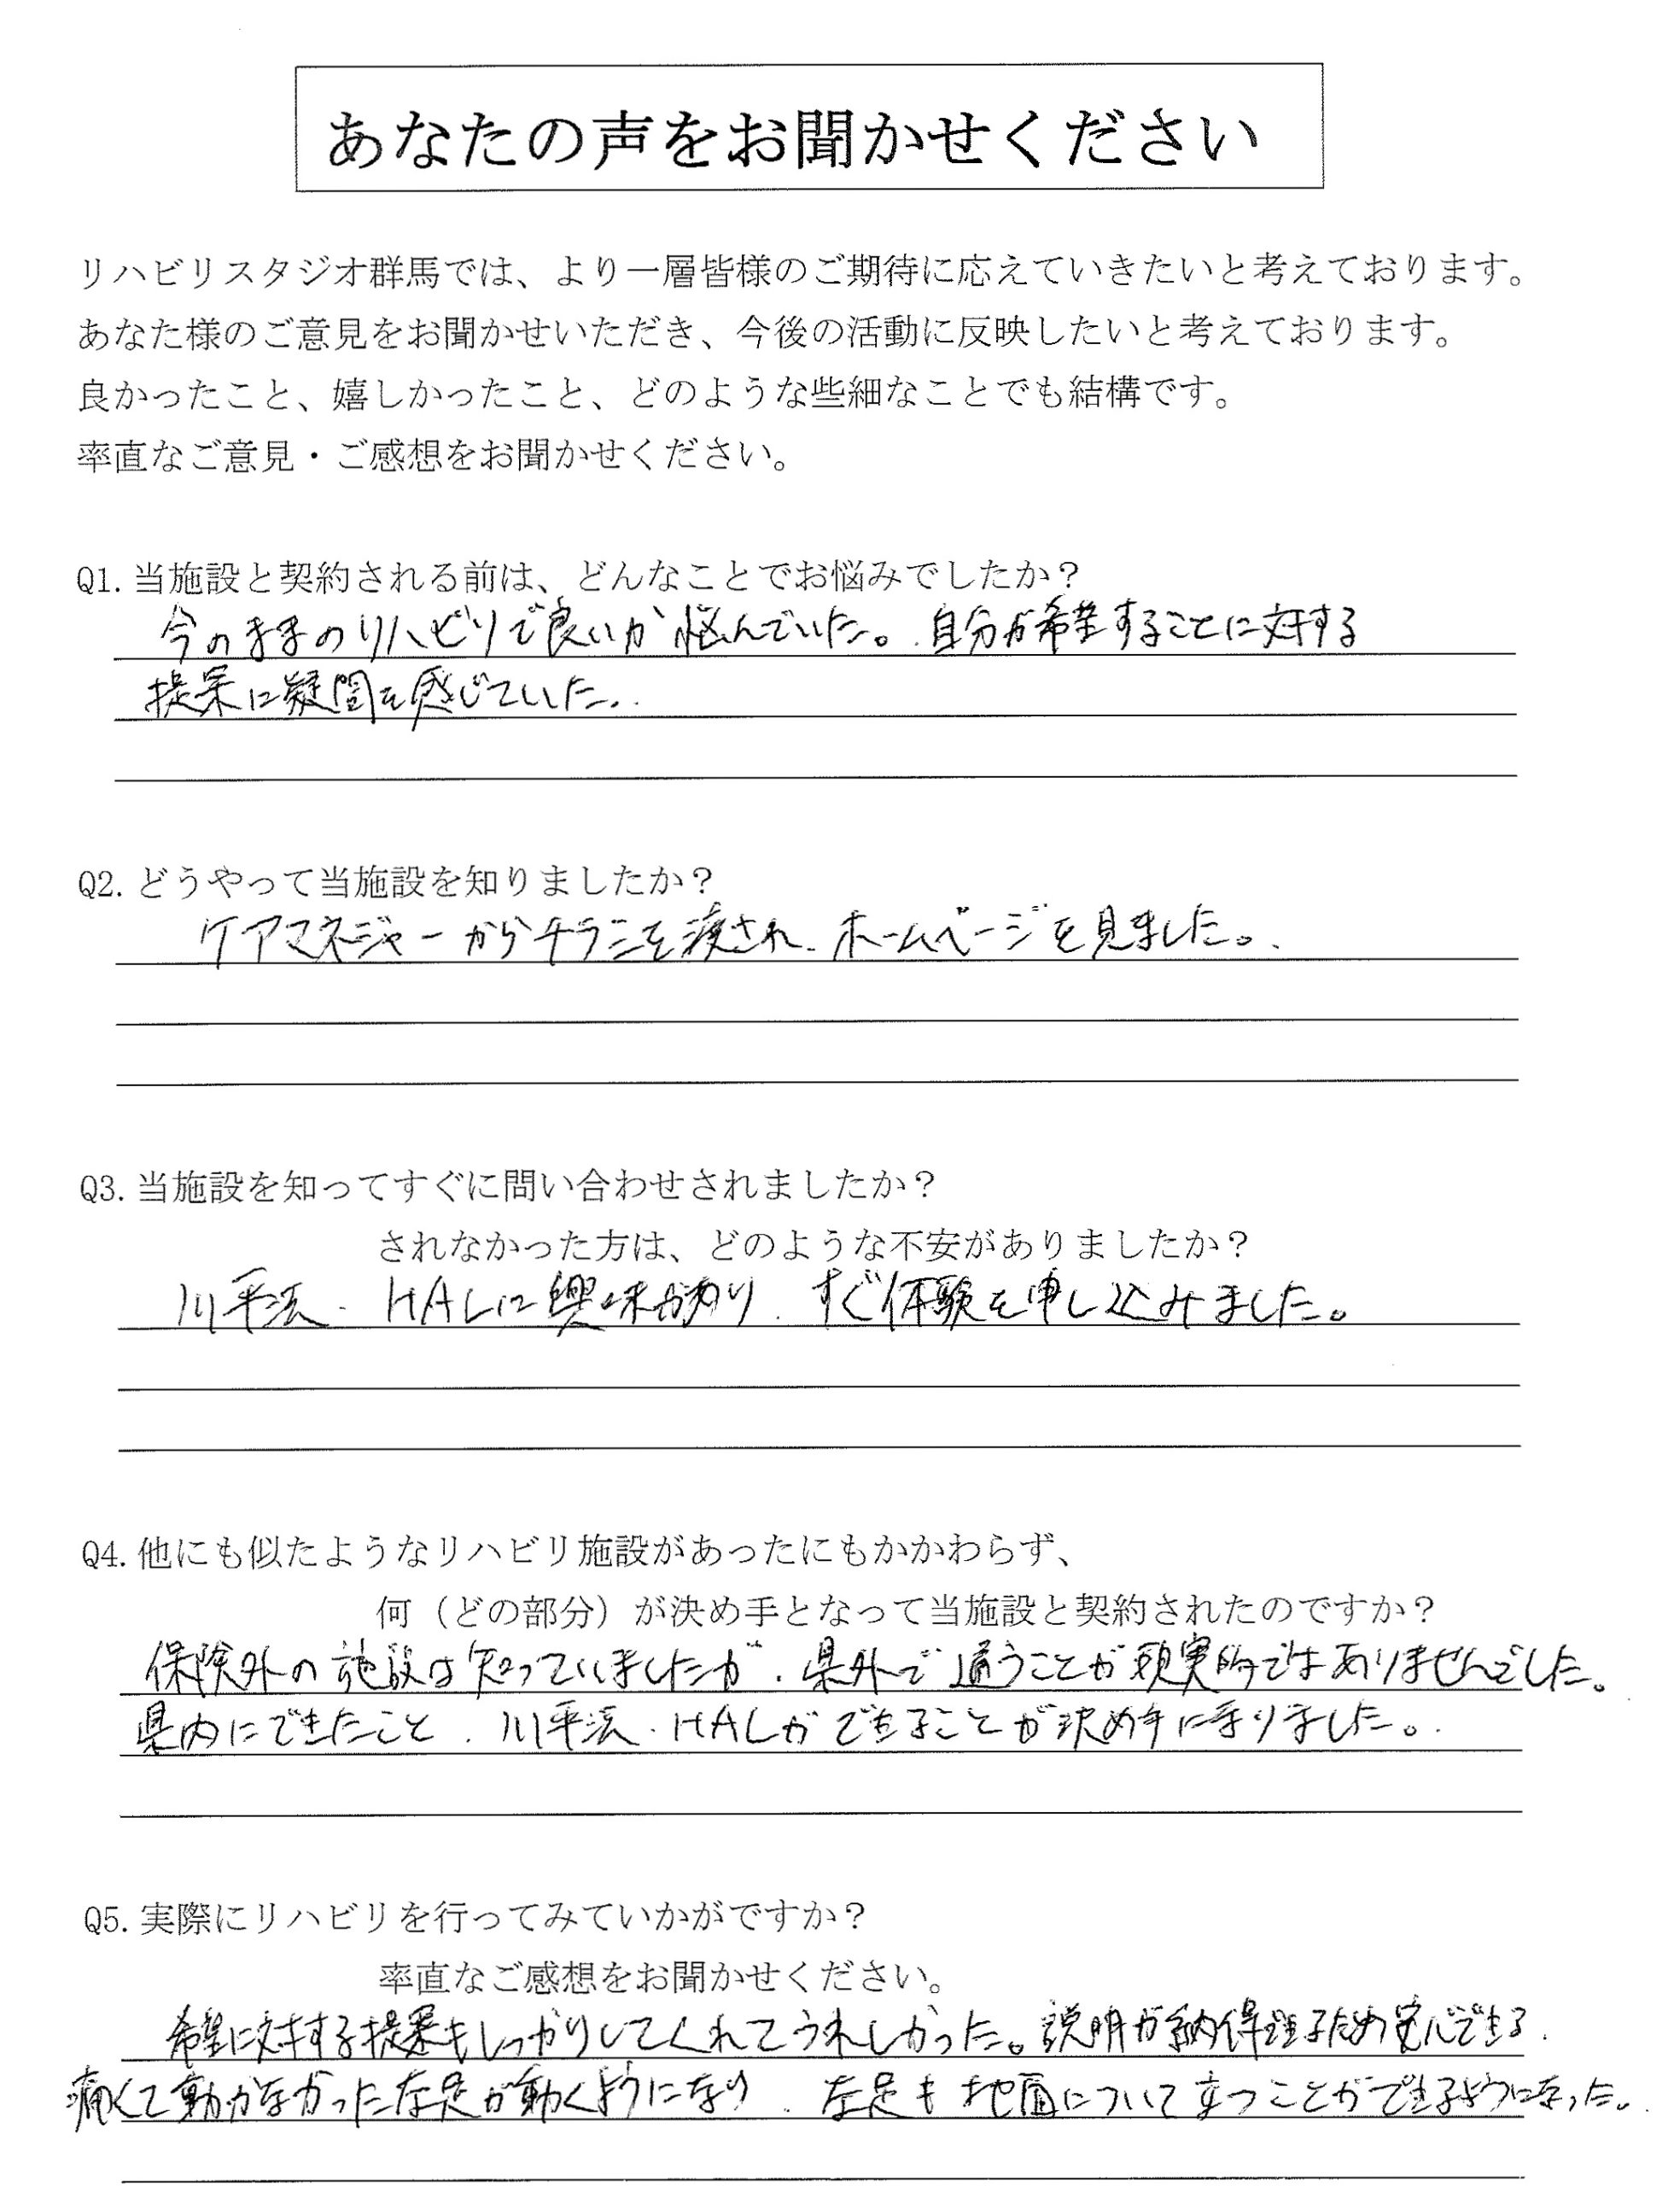 あなたの声をお聞かせください
リハビリスタジオ群馬では、より一層皆様のご期待に応えていきたいと考えております。
あなた様のご意見をお聞かせいただき、今後の活動に反映したいと考えております。
良かったこと、嬉しかったこと、どのような些細なことでも結構です。
率直なご意見・ご感想をお聞かせください。
Q1. 当施設と契約される前は、どんなことでお悩みでしたか？
今のままのリハビリで良いか悩んでいた。自分が希望することに対する
提案に疑問を感じていた。
Q2. どうやって当施設を知りましたか？
ケアマネジャーからチラシを渡され、ホームページを見ました。
Q3. 当施設を知ってすぐに問い合わせされましたか？
されなかった方は、どのような不安がありましたか？
川平法、HALに興味があり、すぐ体験を申し込みました。
Q4. 他にも似たようなリハビリ施設があったにもかかわらず、
何（どの部分）が決め手となって当施設と契約されたのですか？
保険外の施設は知っていましたが、県外で通うことが現実的ではありませんでした。
県内にできたこと、川平法、HALができることが決め手になりました。
Q5. 実際にリハビリを行ってみていかがですか？
率直なご感想をお聞かせください。
希望に対する提案もしっかりしてくれてうれしかった。説明が納得 ため安心できる。
痛くて動かなかった左足が動くようになり、左足も地面について立つことができるようになった。